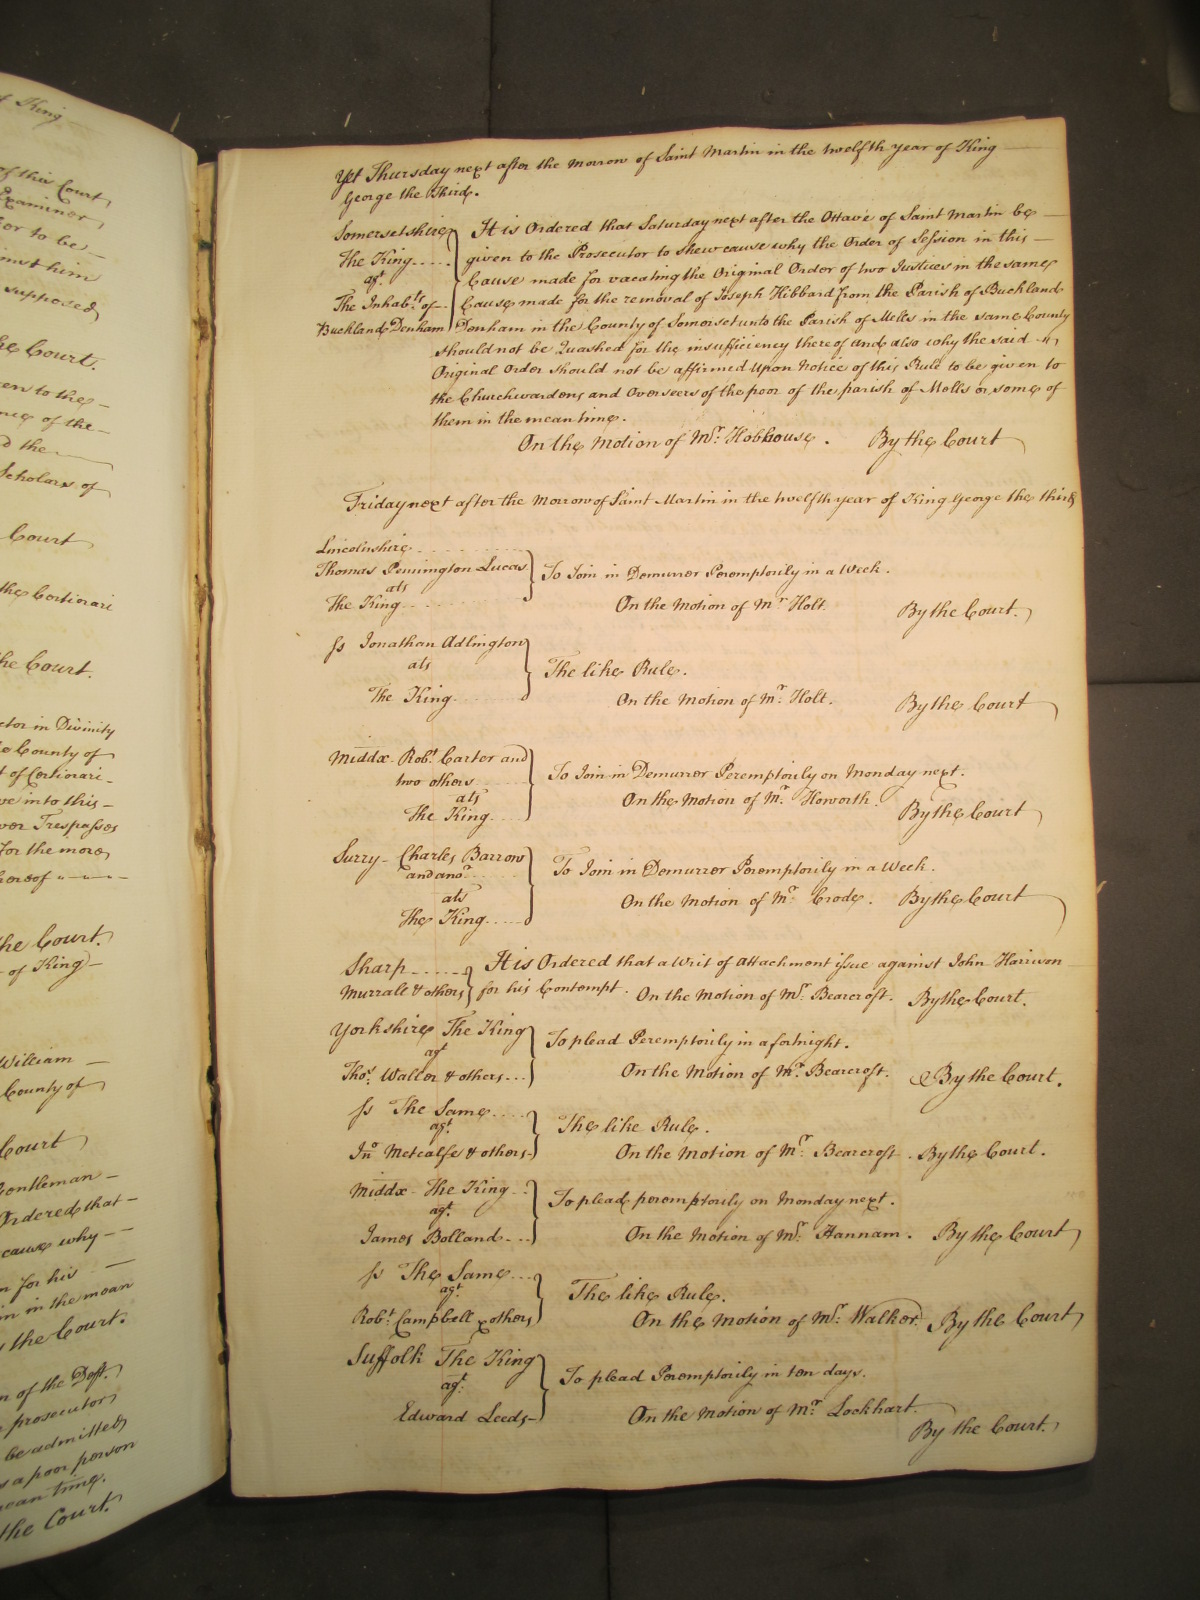 t King
of this Court
Examiner
or to be
inst him
supposed
he Court.
en to the
nce of the
d the
Scholars of
Court
the Certiorari
he Court.
ctor in Divinity
e County of
t of Certiorari
ve into this
ver Trespasses
For the more
hereof
he Court.
of King
William
County of
Court
Gentleman
Ordered that
cause why
n for his
in in the mean
y the Court.
n of the Deft.
prosecutor
be admitted
s a poor person
mean time.
the Court.
Yet Thursday next after the Morrow of Saint Martin in the twelfth year of King
George the Third.
Somersetshire It is Ordered that Saturday next after the Ottave of Saint Martin be
The King given to the Prosecutor to shew cause why the Order of Session in this
agt. Cause made for vacating the Original Order of two Justices in the same
The Inhabts. of Cause made for the removal of Joseph Hibbard from the Parish of Buckland
Buckland Denham Denham in the County of Somerset unto the Parish of Mells in the same County
should not be Quashed for the insufficiency thereof and also why the said
Original Order should not be affirmed Upon Notice of this Rule to be given to
the Churchwardens and Overseers of the poor of the parish of Mells or some of
them in the mean time.
On the Motion of Mr. Hobhouse. By the Court
Friday next after the Morrow of Saint Martin in the twelfth year of King George the third
Lincolnshire
Thomas Pennington Lucas To Join in Demurrer Peremptorily in a Week.
ats
The King On the Motion of Mr Holt. By the Court.
Ss Jonathan Adlington
ats The like Rule.
The King On the Motion of Mr. Holt. By the Court
Middx. Robt. Carter and
two others To Join in Demurrer Peremptorily on Monday next.
ats On the Motion of Mr. Howorth.
The King By the Court
Surry Charles Barrow
and anor. To Join in Demurrer Peremptorily in a Week.
ats On the Motion of Mr. Crode. By the Court
The King
Sharp It is Ordered that a Writ of Attachment issue against John Harrison
Murrall & others for his Contempt. On the Motion of Mr. Bearcroft. By the Court.
Yorkshire The King To plead Peremptorily in a fortnight.
agt
Thos. Walter & others On the Motion of Mr. Bearcroft. By the Court.
Ss The Same The like Rule.
agt.
Jno Metcalfe & others On the Motion of Mr. Bearcroft. By the Court.
Middx The King To plead peremptorily on Monday next.
agt.
James Bolland On the Motion of Mr. Hannam. By the Court
Ss The Same The like Rule.
agt.
Robt. Campbell & others On the Motion of Mr. Walker. By the Court
Suffolk The King To plead Peremptorily in ten days.
agt.
Edward Leeds On the Motion of Mr. Lockhart.
By the Court.